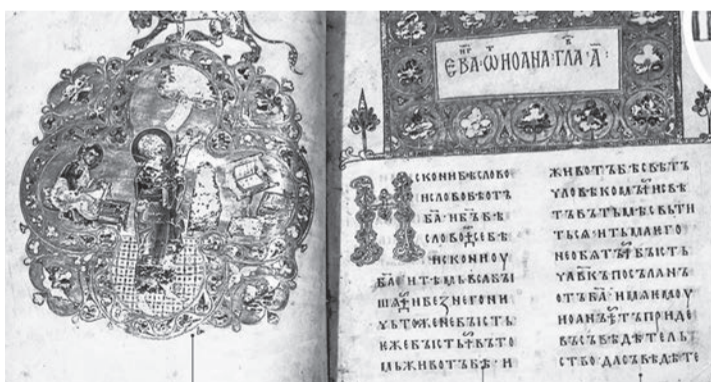 ЕВⷢ҇А·Ѿ ИОАНА·ГЛАⷡ҇·А҃:
ИСКОНИБѢСЛОВО
ИСЛОВОБѢОТЪ
Б҃А·ИБ҃ЪБѢ
СЛОВО·СЕБѢ
ИСКОНИОУ
Б҃А·ИТѢМЬВСАБЫ
ШѦ·ИБЕꙀНЕГОНИ
ЧЬТОЖЕНЕБЫСТЬ
ѤЖЕБЫСТЬ·ВЪТО
МЬЖИВОТЪБѢ·И
ЖИВОТЪБѢСВѢТЪ
ЧЛОВѢКОМЪ·ИСВѢ
ТЪВЪТЬМѢСВЬТИ
ТЬСѦ·ИТЬМАѤГО
НЕОБѦТЪ·БЫСТЬ
ЧЛ҃ВКЪПОСЪЛАНЪ
ОТЪБ҃А·ИМѦѤМОУ
ИОАНЪ·ТЪПРИДЕ
ВЪСЪВѢДѢТЕЛЬ
СТВО·ДАСЪВѢДѢТЕ